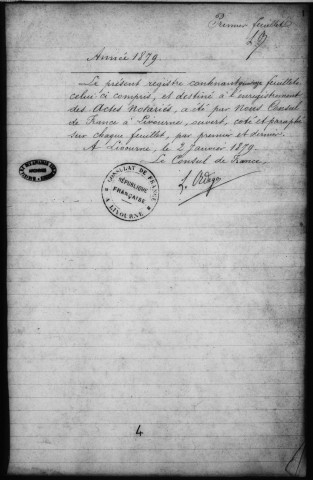 Premier feuillet
Année 1879.
Le présent registre contenant quinze feuillets,
celui ci compris, et destiné à l'enregistrement
des Actes Notariés, a été par Nous Consul
de France à Livourne, ouvert, coté et paraphé
sur chaque feuillet, par premier et dernier.
A Livourne, le 2 Janvier 1879.
Le Consul de France
CONSULAT DE FRANCE
RÉPUBLIQUE
FRANÇAISE
A LIVOURNE
4